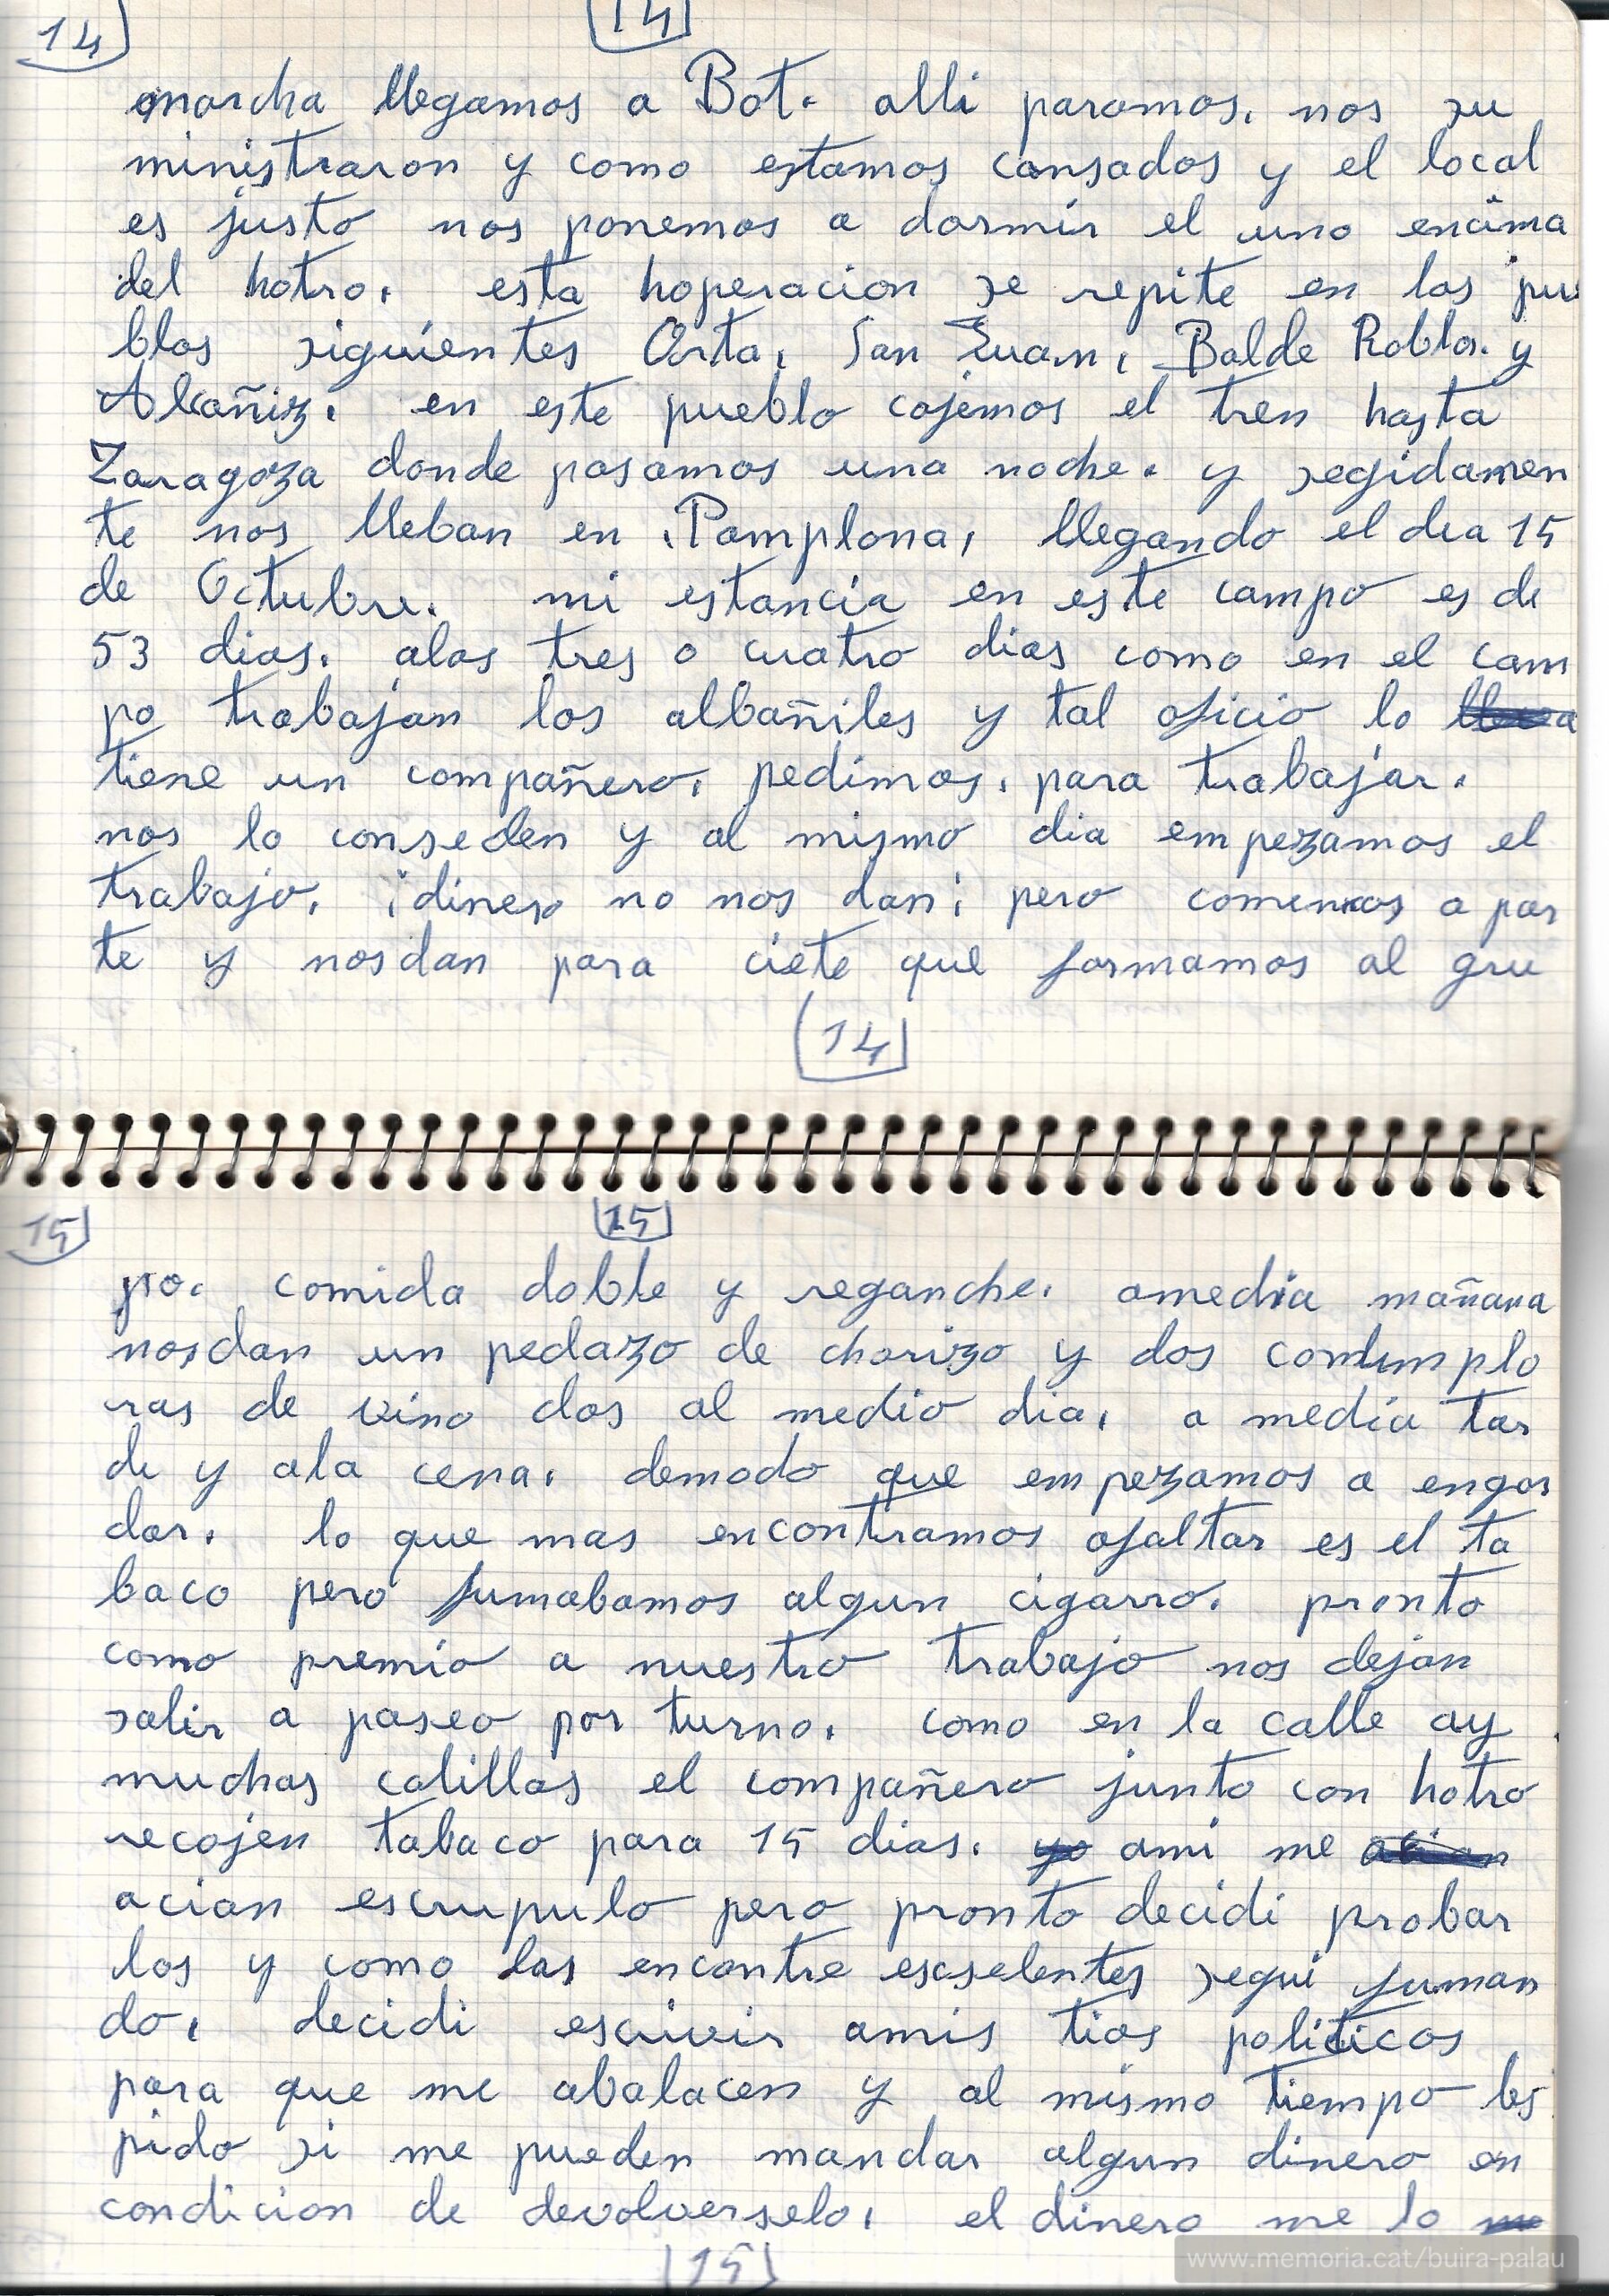 14 14
marcha llegamos a Bot. alli paramos. nos su
ministraron y como estamos cansados y el local
es justo nos ponemos a dormir el uno encima
del hotro. esta hoperacion se repite en los pue
blos siguientes Orta, San Juan, Balde Roblos. y
Alcañiz. en este pueblo cojemos el tren hasta
Zaragoza donde pasamos una noche. y segidamen
te nos lleban en Pamplona, llegando el dia 15
de Octubre. mi estancia en este campo es de
53 dias. alos tres o cuatro dias como en el cam
po trabajan los albañiles y tal oficio lo
tiene un compañero. pedimos, para trabajar.
nos lo conseden y al mismo dia empezamos el
trabajo. ¡dinero no nos dan¡ pero comemos a par
te y nosdan para ciete que formamos al gru
14
15 15
po. comida doble y reganche. amedia mañana
nosdan un pedazo de chorizo y dos
ras de vino dos al medio dia, a media tar
de y ala cena. demodo que empezamos a engor
dar. lo que mas encontramos afaltar es el ta
baco pero fumabamos algun cigarro. pronto
como premio a nuestro trabajo nos dejan
salir a paseo por turno. como en la calle ay
muchas colillas el compañero junto con hotro
recojen tabaco para 15 dias. yo ami me
acian escrupulo pero pronto decidi probar
los y como las encontre escselentes segui fuman
do. decidi escrivir amis tios politicos
para que me abalacen y al mismo tiempo les
pido si me pueden mandar algun dinero en
condicion de devolverselo. el dinero me lo me
15
www.memoria.cat/buira-palau